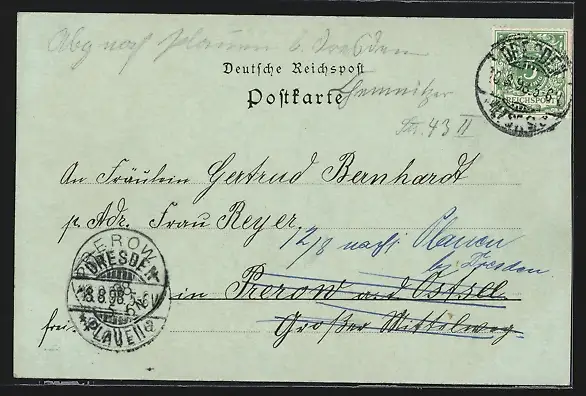 Abg nach Plauen b. Dresden
Deutsche Reichspost
Postkarte
Chemnitzer
Str. 43 II
DRESDEN
REICHSPOST
An Fräulein Gertrud Bernhardt
p. Adr. Frau Reyer
12/8 nach Plauen
bei Dresden
in Prerow a.d. Ostsee
Großer Mittelweg
frei
PREROW
DRESDEN
13.8.98
PLAUEN